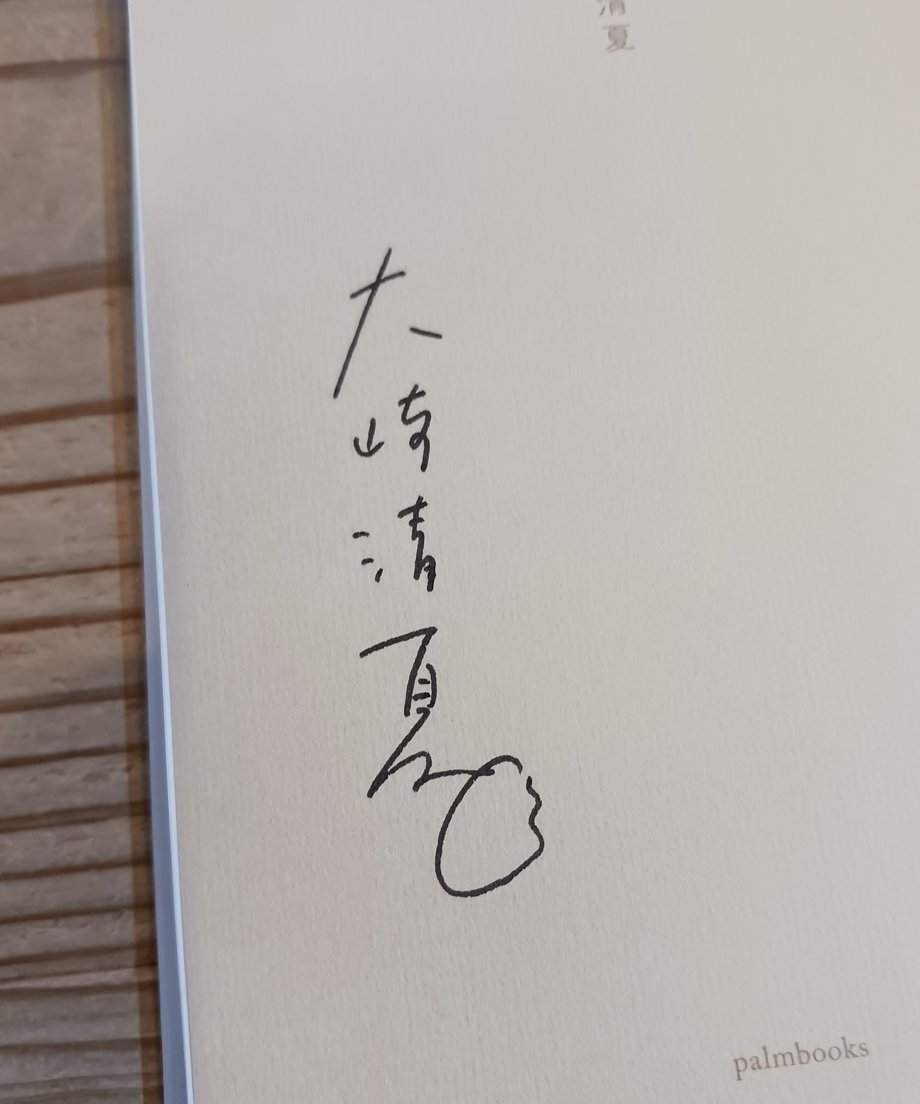 清夏
大崎清夏
palmbooks